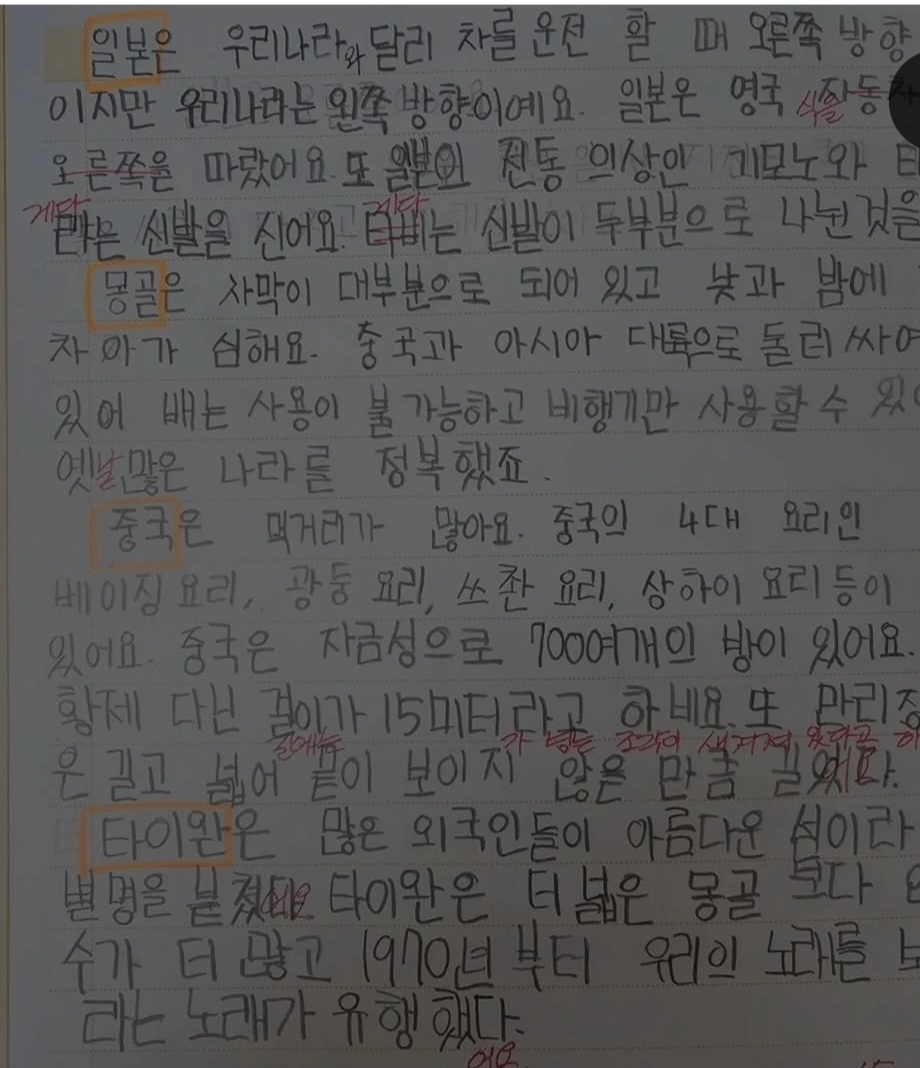 일본은 우리나라와 달리 차를 운전 할 때 오른쪽 방향
이지만 우리나라는 왼쪽 방향이예요. 일본은 영국 식을 자동차
오른쪽을 따랐어요. 또 일본의 전통 의상인 기모노와
게다 게다
라는 신발을 신어요. 는 신발이 두부분으로 나뉜것을
몽골은 사막이 대부분으로 되어 있고 낮과 밤에
차아가 심해요. 중국과 아시아 대륙으로 둘러 싸여
있어 배는 사용이 불가능하고 비행기만 사용할 수
옛날 많은 나라를 정복했죠.
중국은 먹거리가 많아요. 중국의 4대 요리인
베이징요리, 광둥 요리, 쓰촨 요리, 상하이 요리 등이
있어요. 중국은 자금성으로 7000여개의 방이 있어요.
황제 다닌 길이가 15미터라고 하네요. 또 만리장
길에는 가 넓은 조각이 새겨져 있다고
은 길고 넓어 끝이 보이지 않을 만큼 길었다.
타이완은 많은 외국인들이 아름다운 섬이라
별명을 붙였다 어요 타이완은 터 넓은 몽골 보다
수가 터 많고 1970년 부터 우리의 노래를
라는 노래가 유행했다.
어요